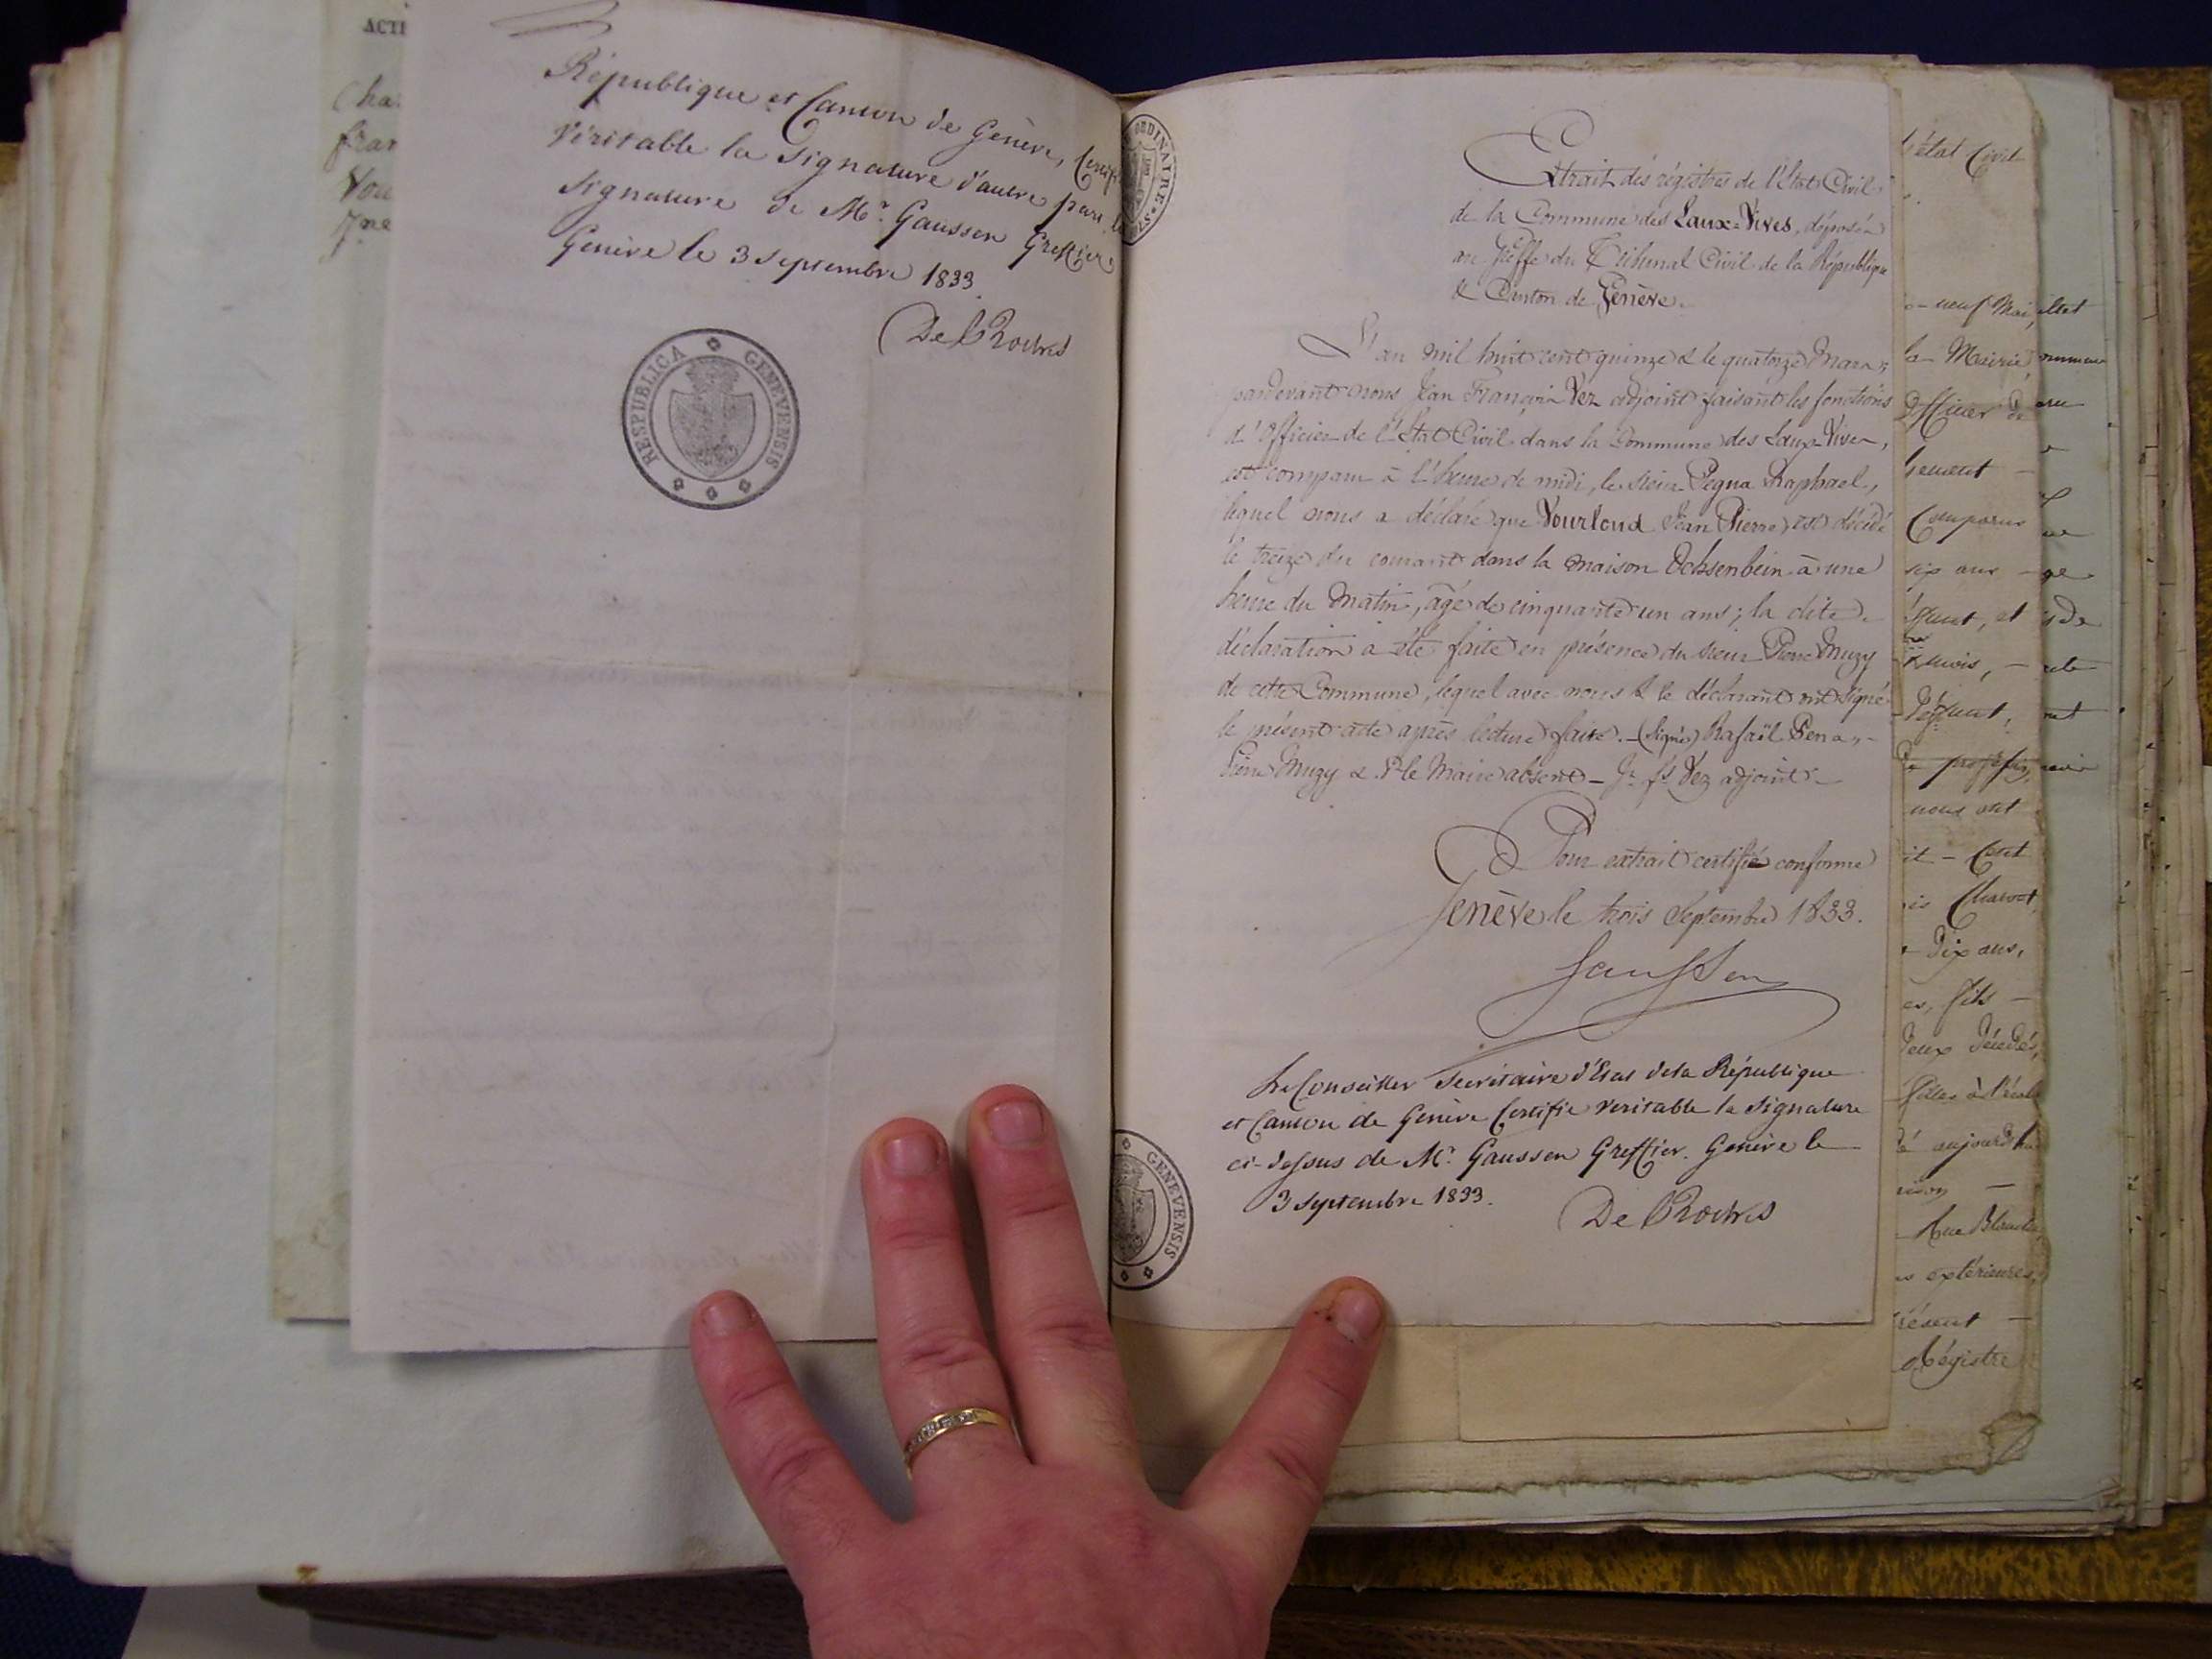 ACTE
Cha
fran
Vou
République et Canton de Genève, Certifi
Véritable la Signature d'autre part, la
Signature de Mr. Gaussen Greffier.
Genève le 3 Septembre 1833.
De Roches
RESPUBLICA GENEVENSIS
Extrait des régistres de l'Etat Civil
de la Commune des Eaux-Vives, déposés
au Greffe du Tribunal Civil de la République
& Canton de Genève.
L'an mil huit cent quinze & le quatorze Mars,
pardevant nous Jean François Vez adjoint faisant les fonctions
d'Officier de l'Etat Civil dans la Commune des Eaux-Vives,
est comparu à l'heure de midi, le sieur Pegna Raphael,
lequel nous a déclaré que Vourloud Jean Pierre, est décédé
le treize du courant dans la maison Ochsenbein à une
heure du matin, âgé de cinquante un ans; la dite
déclaration a été faite en présence du sieur Pierre Muzy
de cette Commune, lequel avec nous & le déclarant ont signé
le présent acte après lecture faite. - (Signé) Rafaël Pena,-
Pierre Muzy & Pr le Maire absent - Jn fs Vez adjoint -
Pour extrait certifié conforme
Genève le trois Septembre 1833.
Gaussen
Le Conseiller Secrétaire d'Etat de la République
et Canton de Genève Certifie véritable la Signature
ci-dessus de Mr. Gaussen Greffier. Genève le
3 Septembre 1833.
De Roches
GENEVENSIS
l'état Civil
neuf Mai,
la Mairie
Officier de
Comparus
six ans
mois,
nous ont
Dix ans,
fils
aujourd'hui
Rue Blanche
extérieures,
Régistre